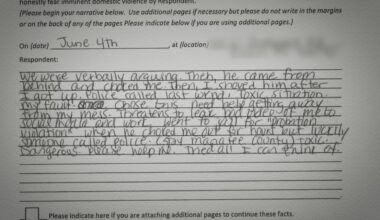 honestly fear imminent domestic violence by Respondent.
(Please begin your narrative below. Use additional pages if necessary but please do not write in the margins
or on the back of any of the pages Please indicate below if you are using additional pages.)
On (date) June 4th at (location)
Respondent:
We were verbally arguing. Then, he came from
behind and choked me. Then I shoved him after
I got up, Police called last word. Toxic situation.
my fault chose this, need help getting away
from my mess. Threatens to leak bad video of me to
social media and work, went to jail for "probation
violation" when he choked me out for
someone called police. county) toxic.
Dangerous. Please help me. Tried all I can think of.
Please indicate here if you are attaching additional pages to continue these facts.